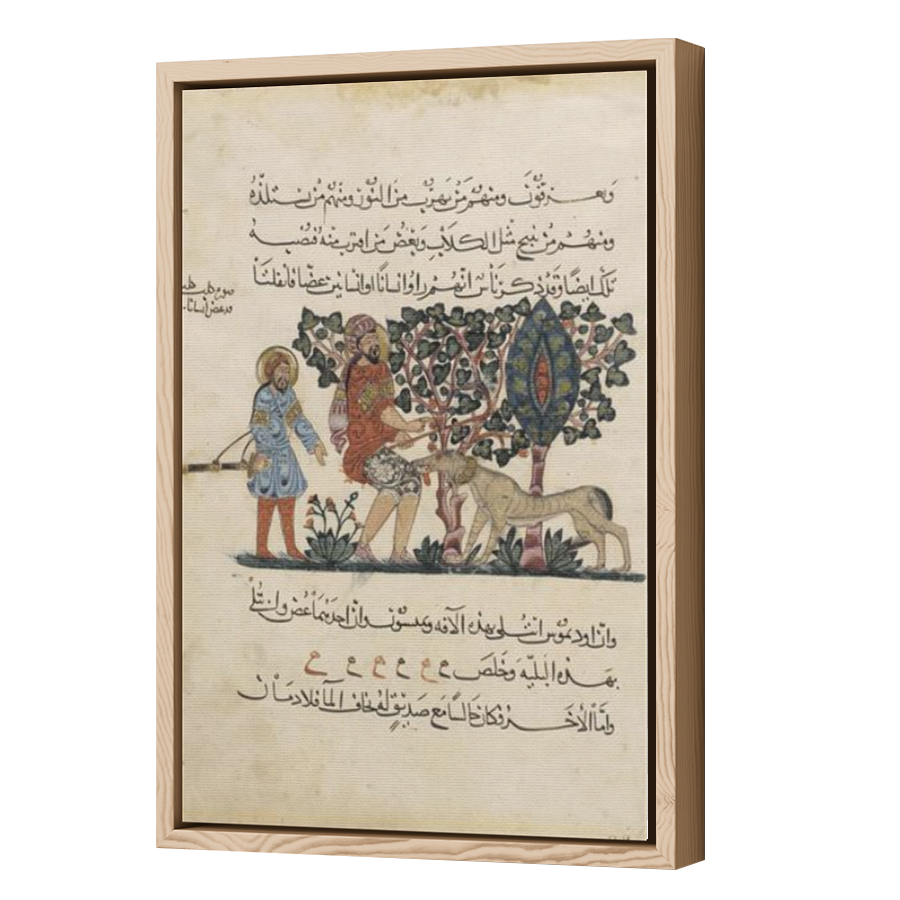 ويعرقون ومنهم من يهرب من النور ومنهم من يستلذه
ومنهم من ينبح مثل الكلاب ويعض من اقترب منه فيصيبه
ذلك ايضا وقد ذكر ناس انهم راوا انسانا او انسانين عضا فافلتا
وان اوديموس ابتلى بهذه الافه وان احدهما عض وابتلي
بهذه البليه وخلص
واما الاخر فكان جالسا مع صديق له فخاف الما فلا دمان